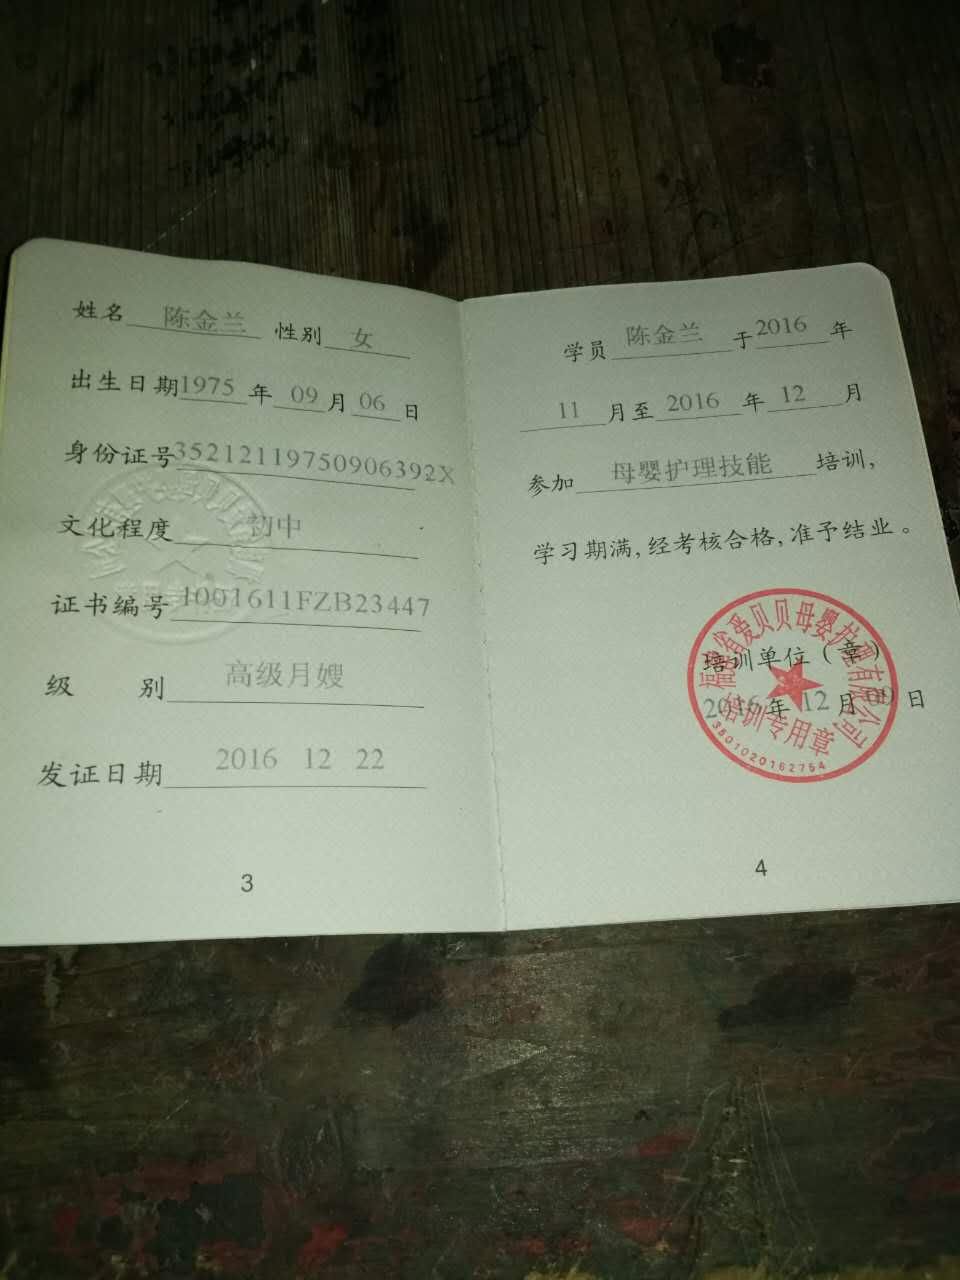 姓名 陈金兰 性别 女
出生日期 1975 年 09 月 06 日
身份证号 35212119750906392X
文化程度 初中
证书编号 1001611FZB23447
级 别 高级月嫂
发证日期 2016 12 22
3
学员 陈金兰 于 2016 年
11 月至 2016 年 12 月
参加 母婴护理技能 培训,
学习期满,经考核合格,准予结业。
福建省爱贝贝母婴护理有限公司
培训单位(章)
2016 年 12 月 09 日
培训专用章
3501020162754
4